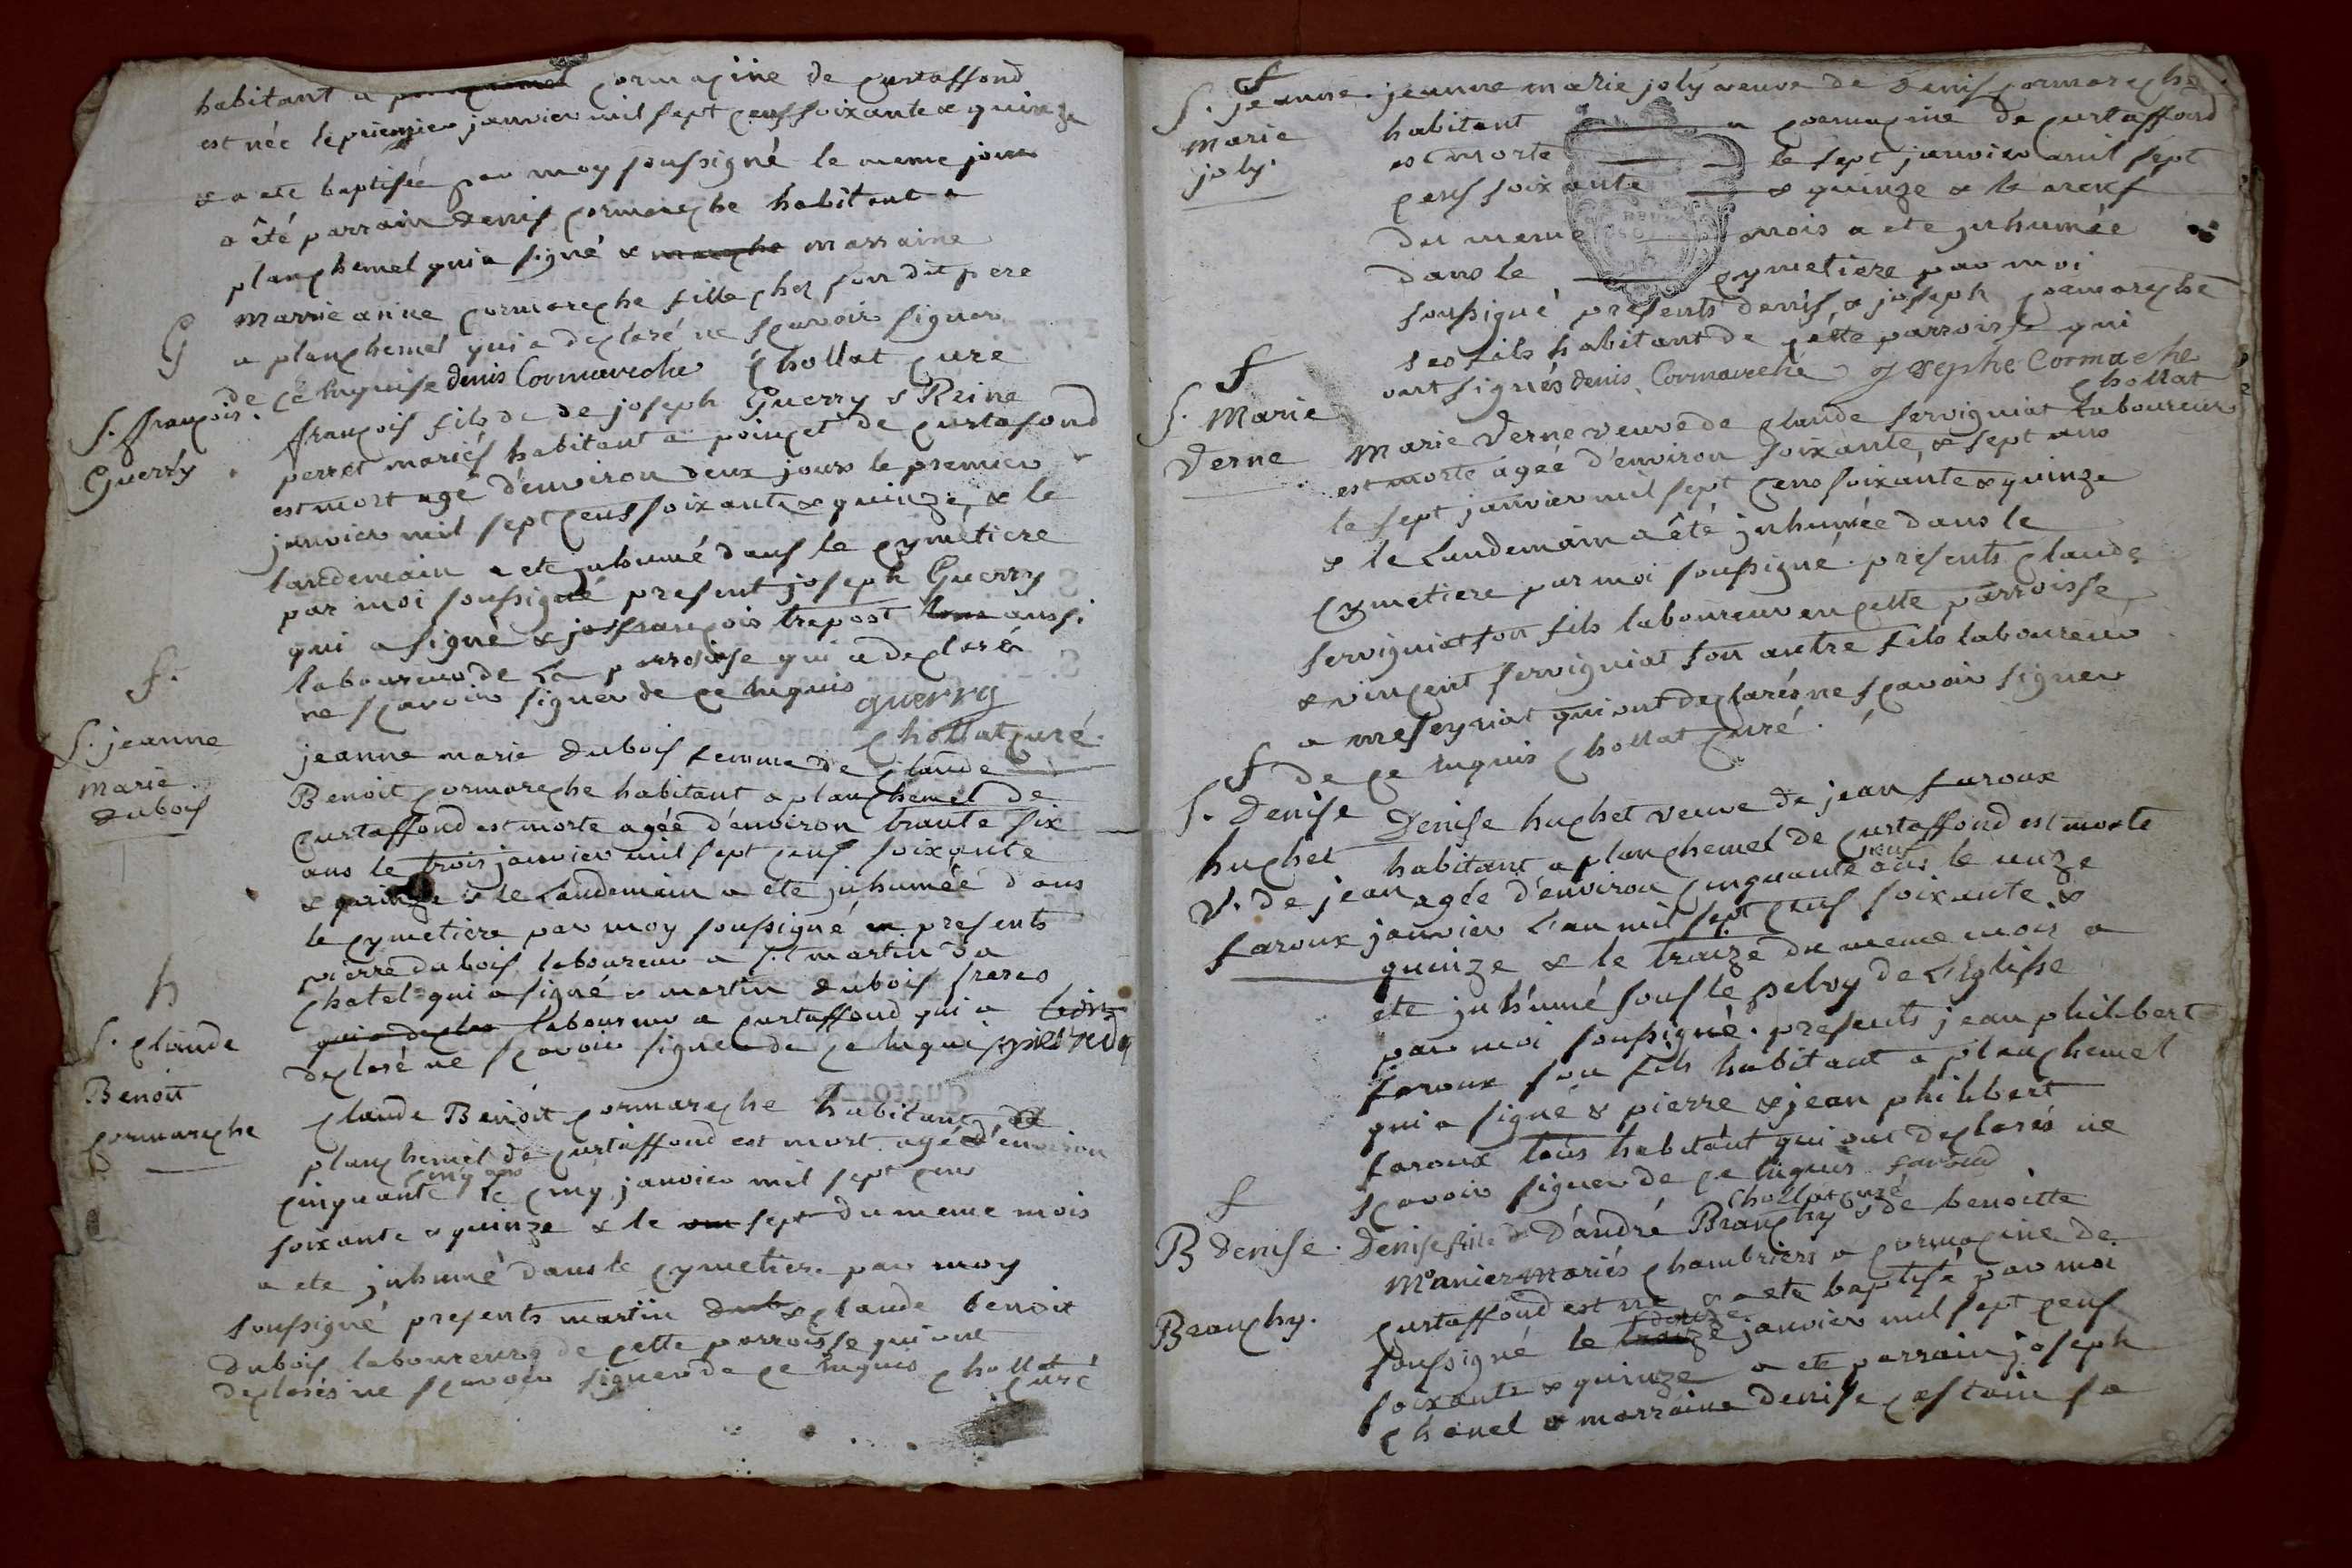 habitant a cormacine de curtaffond
est née le premier janvier mil sept cens soixante & quinze
& a ete baptisée par moy soussigné le meme jour
a été parrain denis cormareche habitant a
planchemel qui a signé & marche marraine
marrie anne cormareche fille chez son dit pere
a planchemel qui a declaré ne scavoir signer
de ce enquise denis Cormareche chollat curé
G
S. françois
Guerry
françois fils de de joseph Guerry & Reine
perret mariés habitant a poincet de curtafond
est mort agé d'environ deux jours le premier
janvier mil sept cens soixante & quinze, & le
landemain a ete inhumé dans le cymetiere
par moi soussigné present joseph Guerry
qui a signé & jos françois trepost aussi
laboureur de La parroisse qui a declaré
ne scavoir signer de ce enquis guerry
chollat curé.
f.
S. jeanne
marie
dubois
jeanne marie dubois femme de claude
Benoit cormareche habitant a planchemel de
curtaffond est morte agée d'environ trante six
ans le trois janvier mil sept cens soixante
& quinze & le Landemain a ete inhumée dans
le cymetiere par moy soussigné en presents
pierre dubois laboureur a st martin Le
chatel qui a signé & martin dubois freres
qui a declaré laboureur a curtaffond qui a
declaré ne scavoir signer de ce enquis pierre du
h
S. claude
Benoit
cormareche
claude Benoit cormareche habitant
planchemel de curtaffond est mort agé d'environ
cinq ans
cinquante le cinq janvier mil sept cens
soixante & quinze & le sept du meme mois
a ete inhumé dans le cymetiere par moy
soussigné presents martin dub & claude benoit
dubois laboureurs de cette parroisse qui ont
declarés ne scavoir signer de ce enquis chollat
curé
f
S. jeanne
marie
joly
jeanne marie joly veuve de denis cormareche
habitant a cormacine de curtaffond
est morte le sept janvier mil sept
cens soixante & quinze & le neuf
du meme mois a ete inhumée
dans le cymetiere par moi
soussigné presents denis, & joseph cormareche
ses fils habitant de cette parroisse qui
ont signés denis Cormareche joseph e Cormache
chollat
f
S. Marie
Verne
Marie Verne veuve de claude servigniat Laboureur
est morte agée d'environ soixante, & sept ans
le sept janvier mil sept cens soixante & quinze
& le Landemain a été inhumée dans le
cymetiere par moi soussigné. presents claude
servigniat son fils laboureur en cette parroisse,
& vincent servigniat son autre fils laboureur
a meseyriat qui ont declarés ne scavoir signer
de ce enquis chollat curé.
f
S. Denise
huchet
v. de jean
faroux
Denise huchet veuve de jean faroux
habitant a planchemel de curtaffond est morte
neuf
agée d'environ cinquante ans le unze
janvier L'an mil sept cens soixante &
quinze & le traize du meme mois a
ete inhumé sous le de L'Eglisse
par moi soussigné. presents jean philibert
faroux son fils habitant a planchemel
qui a signé & pierre & jean philibert
faroux tous habitant qui ont declarés ne
scavoir signer de ce enquis faroud
chollat curé
f
B Denise
Branchy.
Denise fille d'andré Branchy & de benoitte
manier mariés chambriers a cormacine de
curtaffond est né & a ete baptisé par moi
douze
soussigné le traize janvier mil sept cens
soixante & quinze a ete parrain joseph
chanel & marraine Denise castain sa